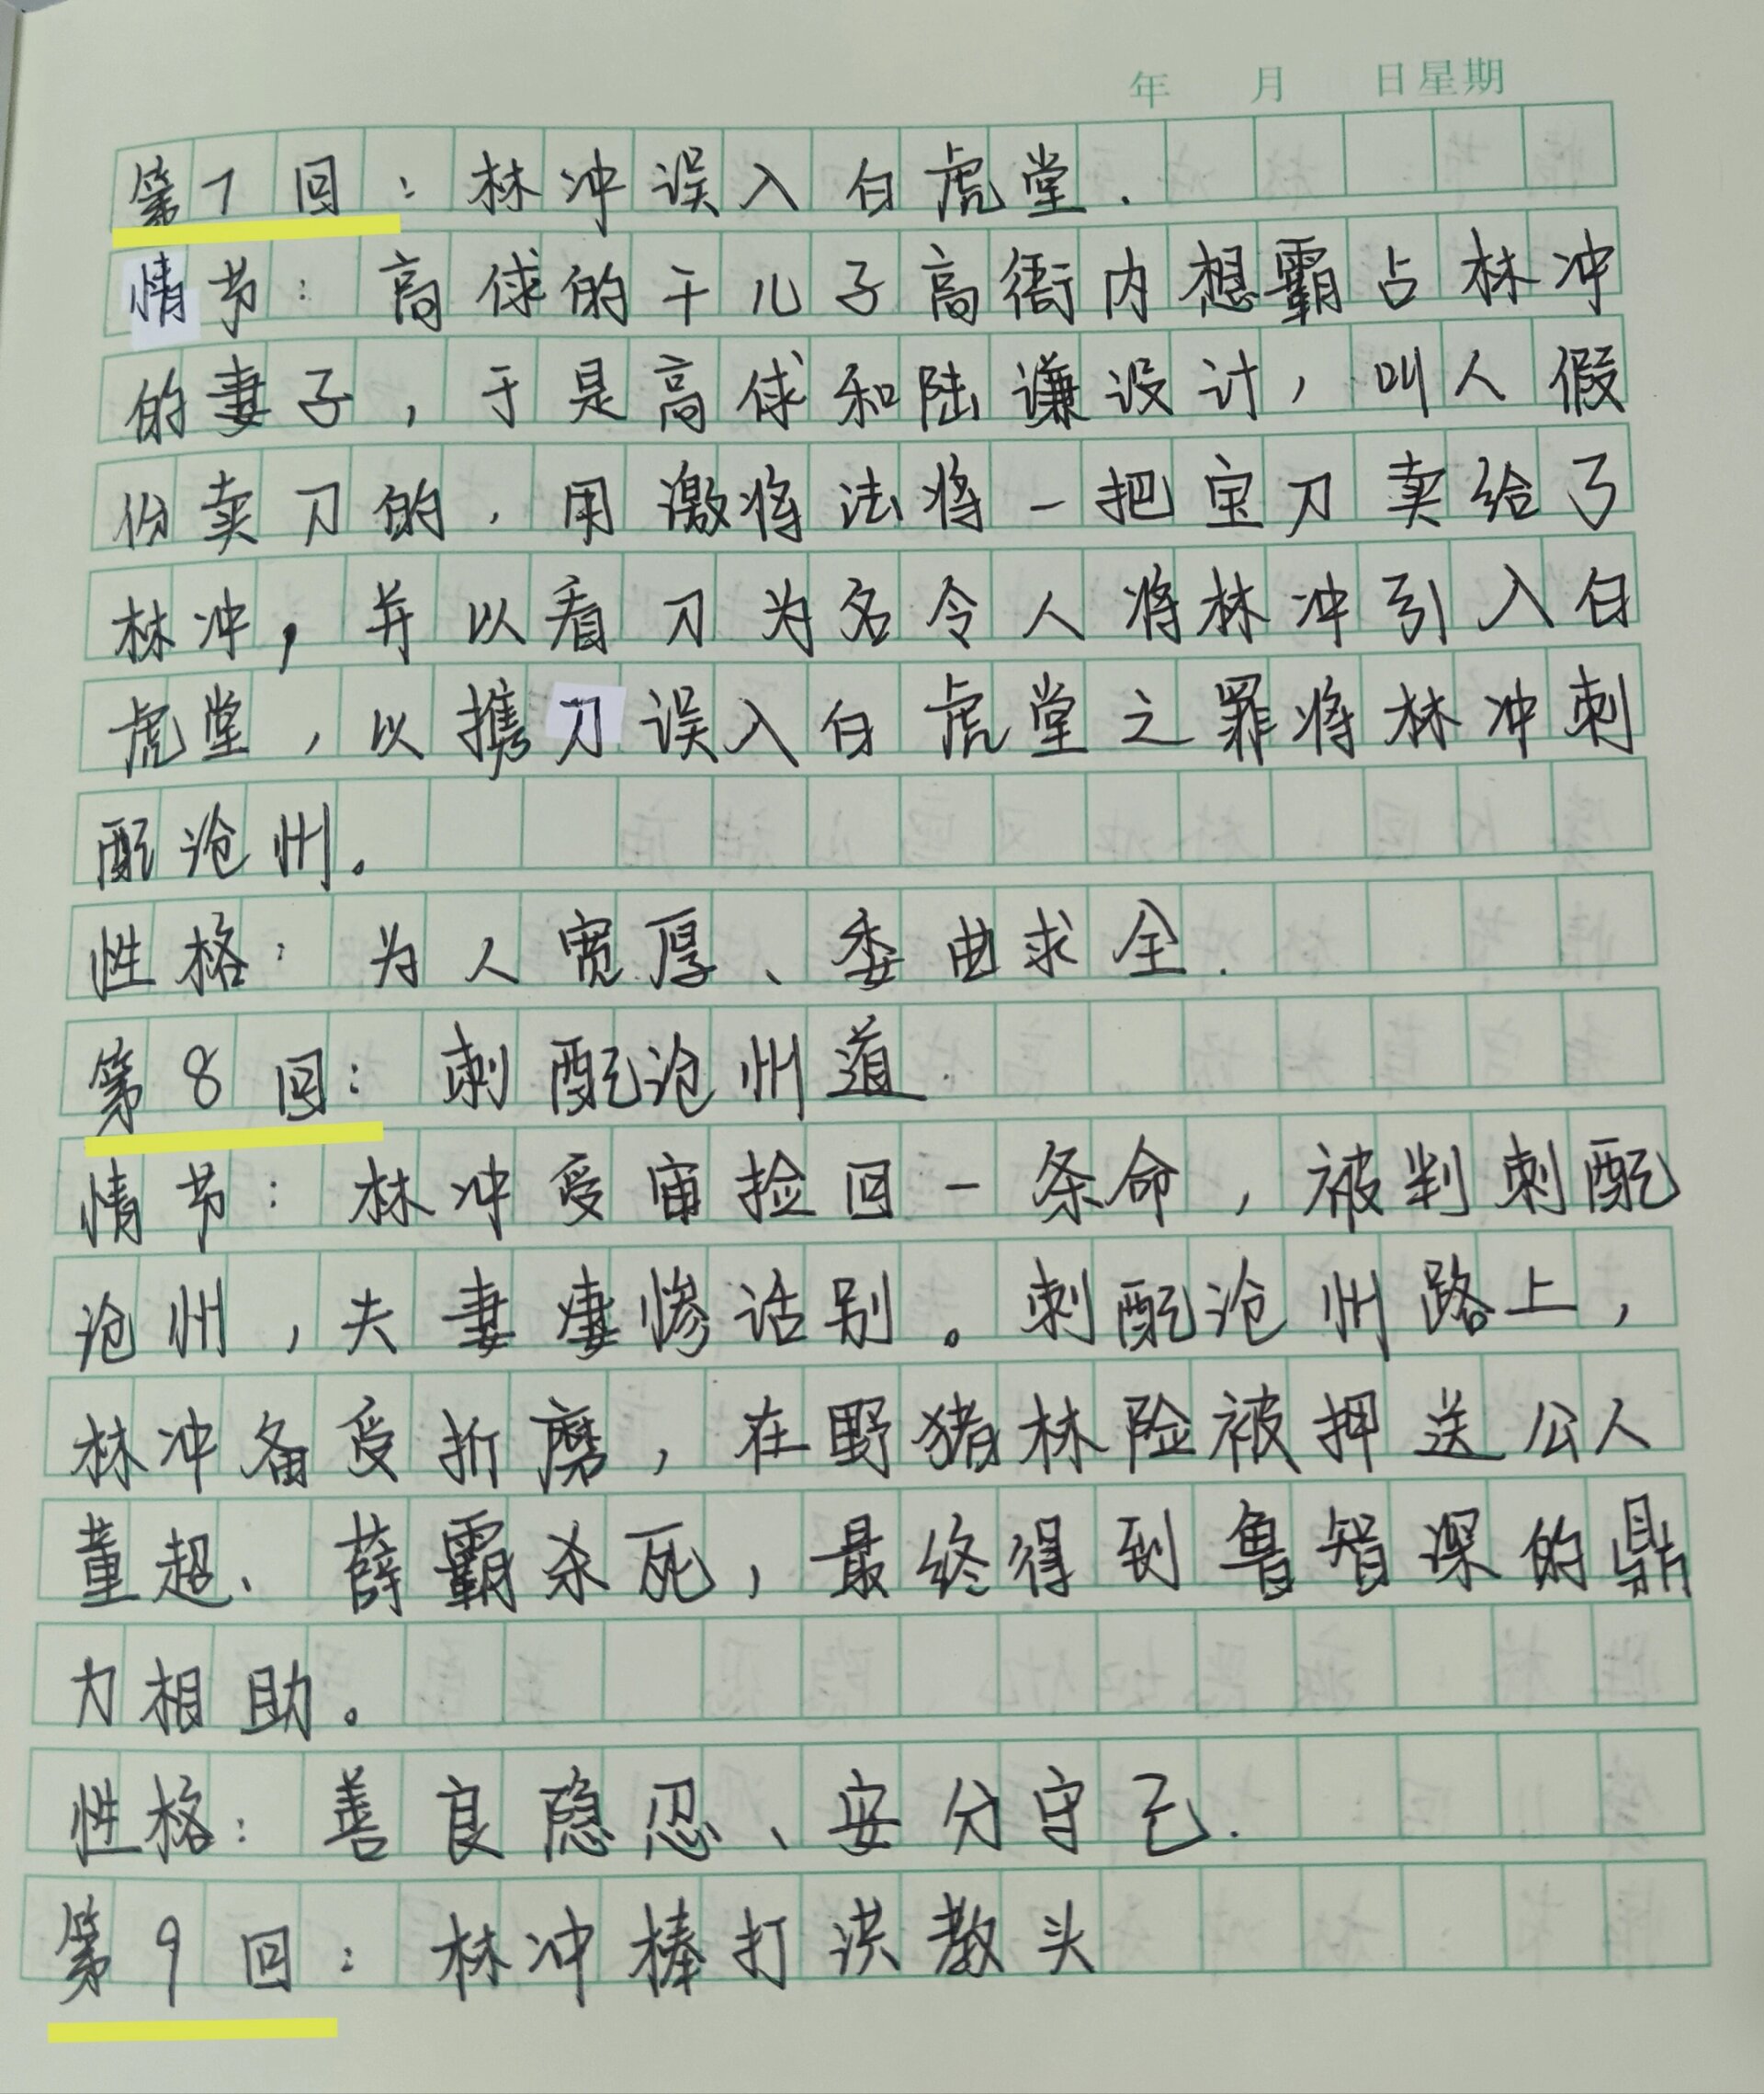 年 月 日星期
第7回：林冲误入白虎堂.
情节：高俅的干儿子高衙内想霸占林冲
的妻子，于是高俅和陆谦设计，叫人假
份卖刀的，用激将法将一把宝刀卖给了
林冲，并以看刀为名令人将林冲引入白
虎堂，以携刀误入白虎堂之罪将林冲刺
配沧州。
性格：为人宽厚、委曲求全.
第8回：刺配沧州道.
情节：林冲受审捡回一条命，被判刺配
沧州，夫妻凄惨话别。刺配沧州路上，
林冲备受折磨，在野猪林险被押送公人
董超、薛霸杀死，最终得到鲁智深的鼎
力相助。
性格：善良隐忍、安分守己.
第9回：林冲棒打洪教头